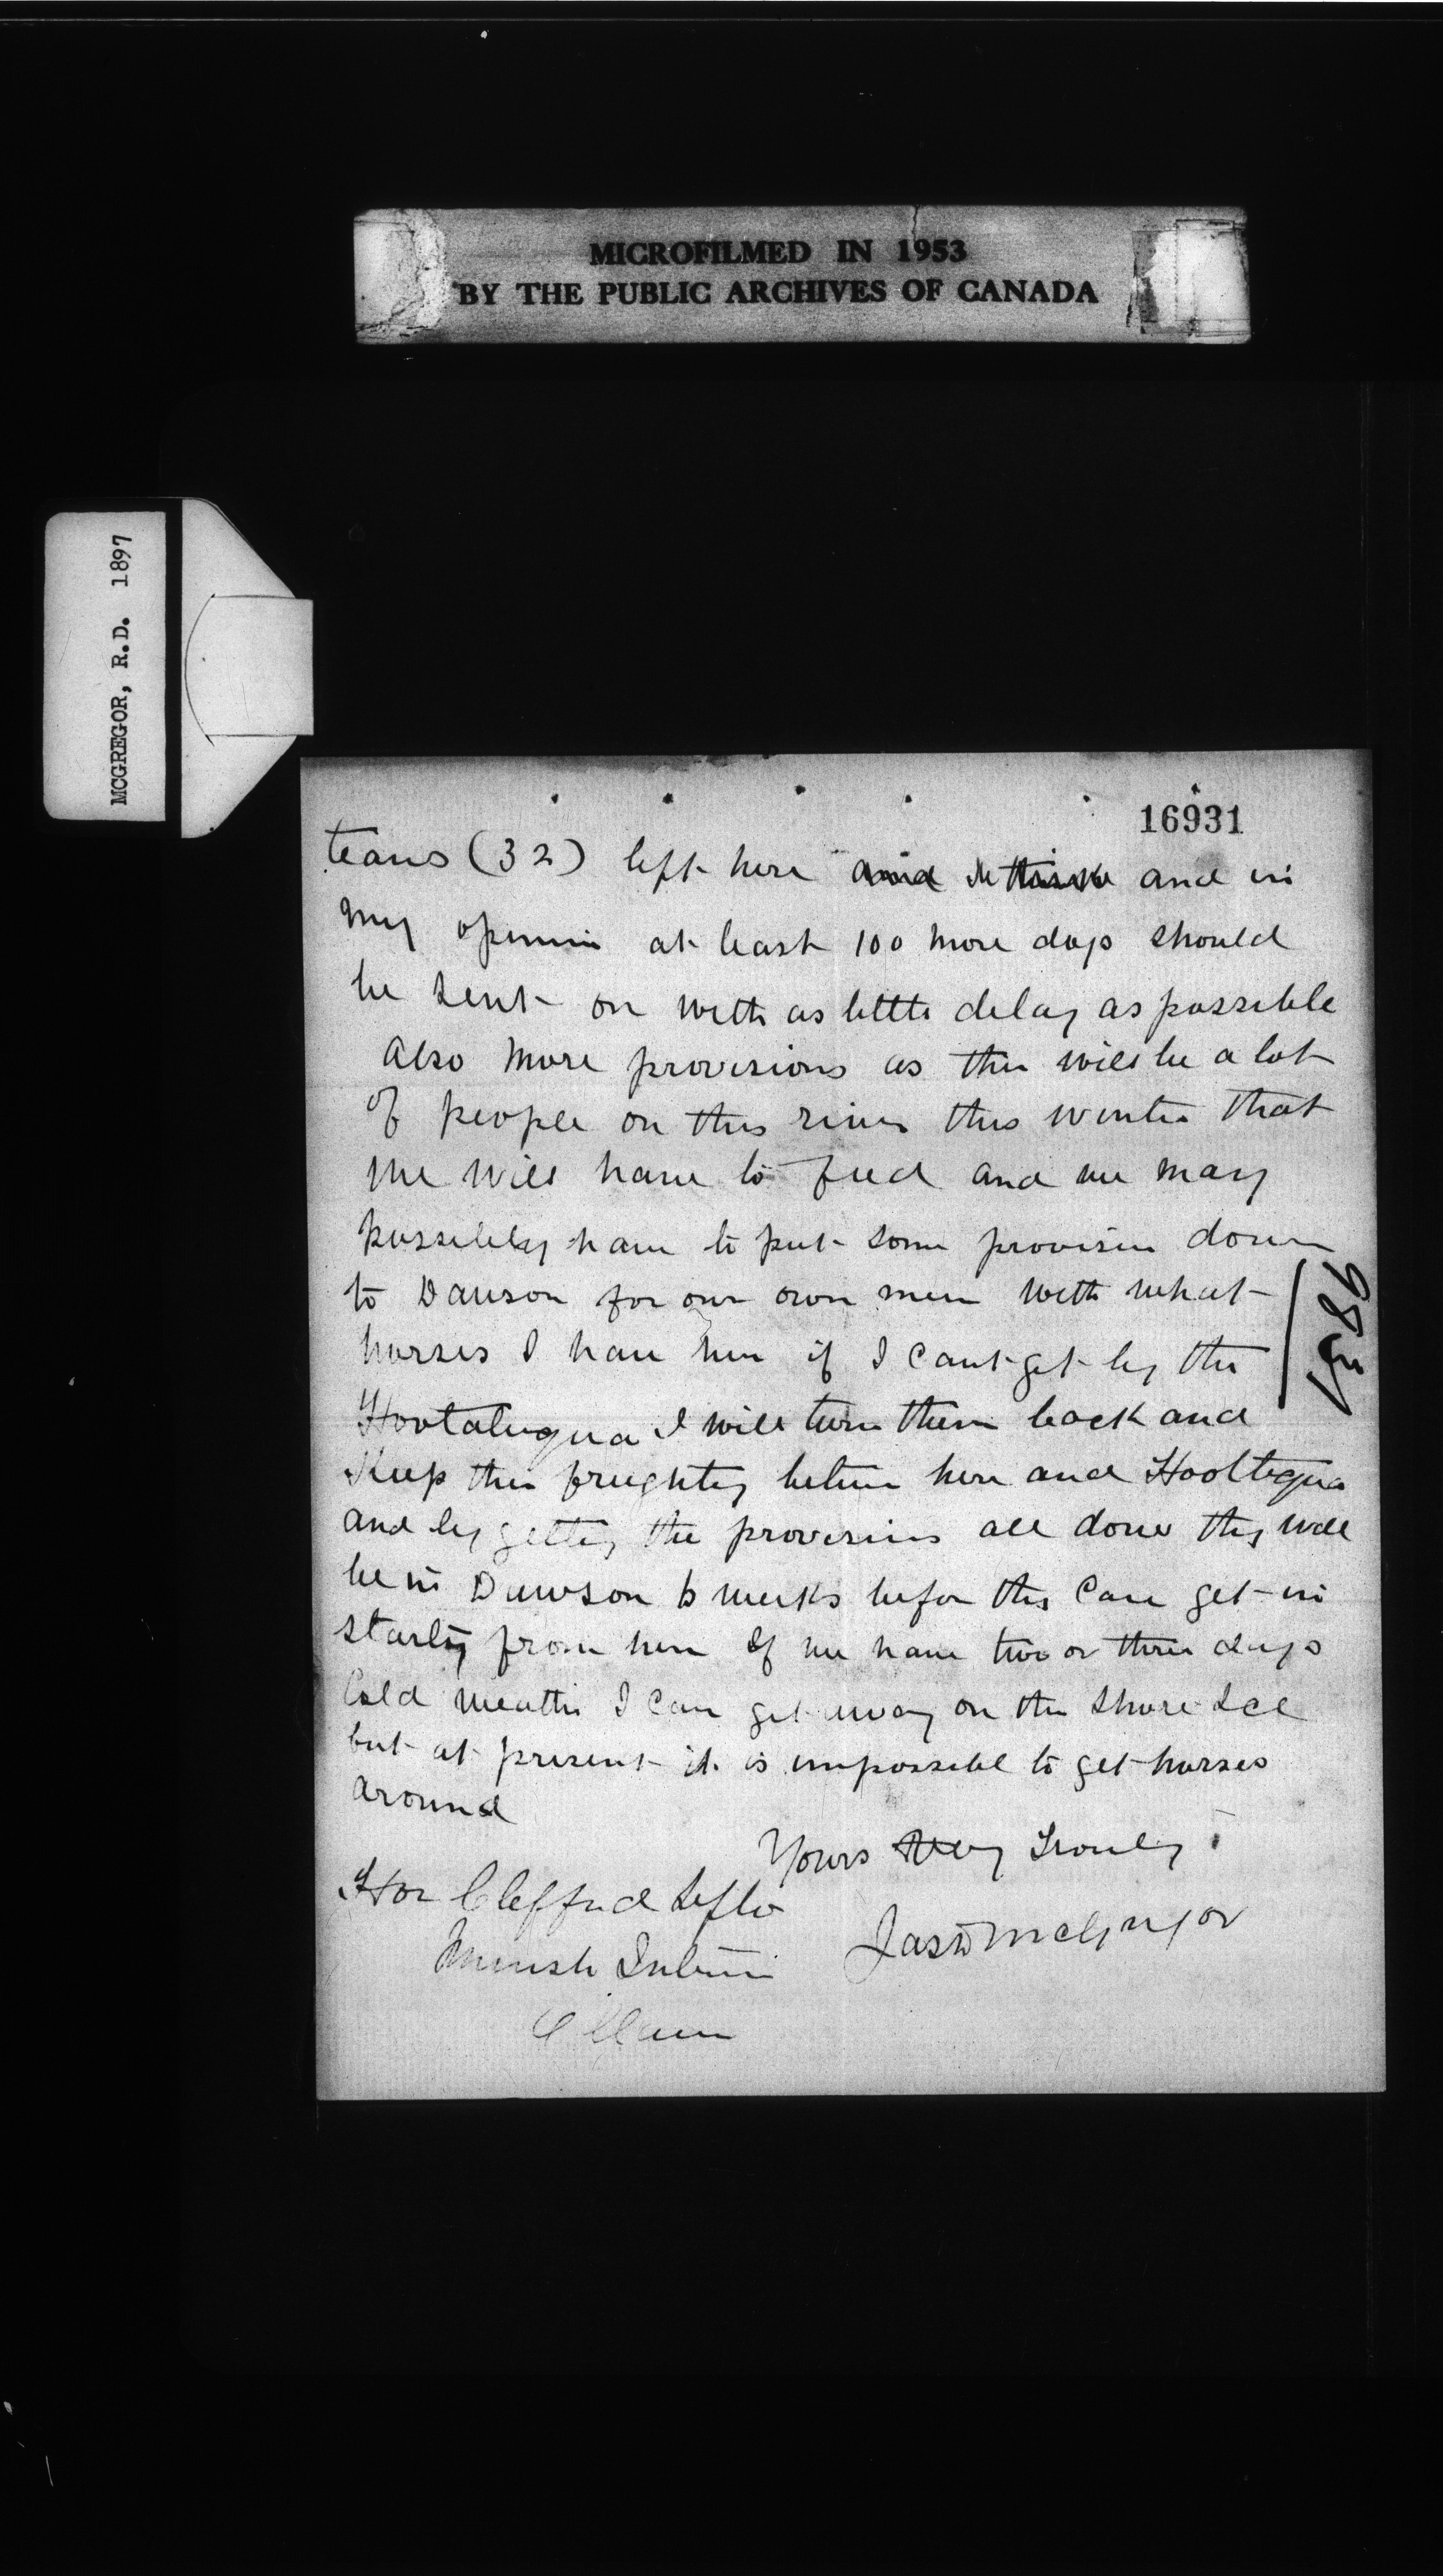 MICROFILMED IN 1953
BY THE PUBLIC ARCHIVES OF CANADA
MCGREGOR, R.D. 1897
16931
teams (32) left here and and in
my opinion at least 100 more dogs should
be sent on with as little delay as possible
Also more provisions as ther will be a lot
of people on this river this winter that
we will have to feed and we may
possibly have to put some provision down
to Dawson for our own men with what
horses I have here if I cant get by the
Hootalinqua I will turn them back and
Keep them freighting between here and Hootlinqua
and by getting the provisions all down they will
be in Dawson weeks before they can get in
starting from here If we have two or three days
Cold weather I can get away on the shore Ice
but at present it is impossible to get horses
around
Yours Very Truly
Hon Clifford Sifton
Jas D McGregor
Minister Interior
Ottawa
983